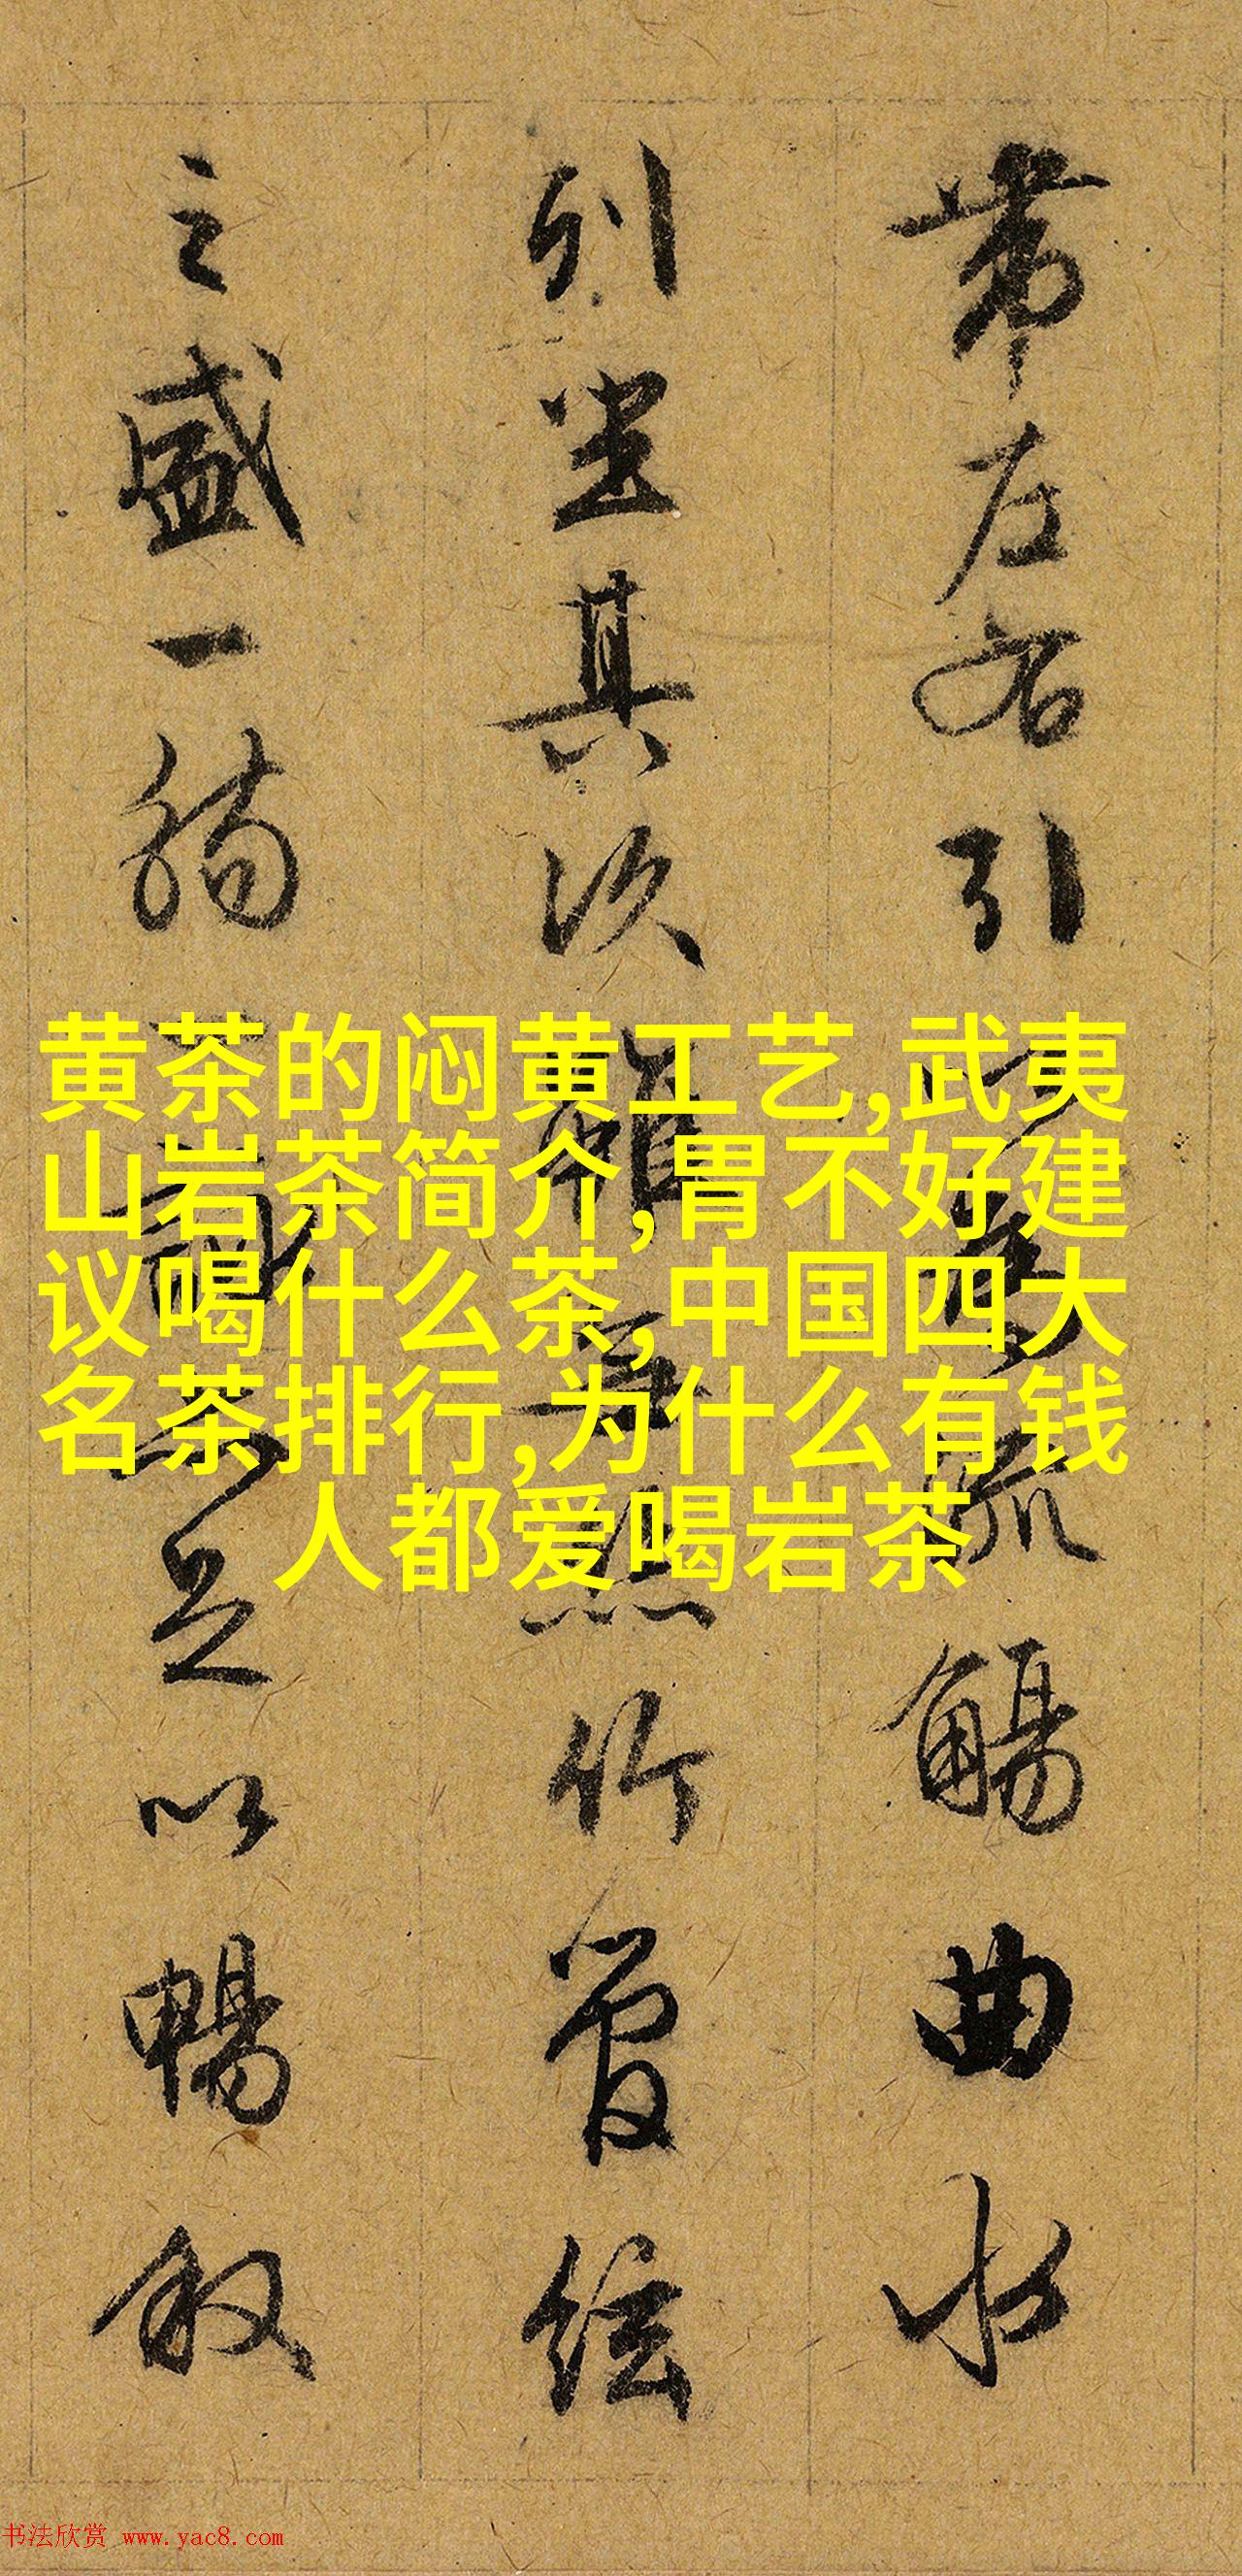 帶左右引以為流觴曲水
列坐其次雖無絲竹管絃
之盛一觴一詠亦足以暢敘
黄茶的闷黄工艺,武夷
山岩茶简介,胃不好建
议喝什么茶,中国四大
名茶排行,为什么有钱
人都爱喝岩茶
书法欣赏 www.yac8.com